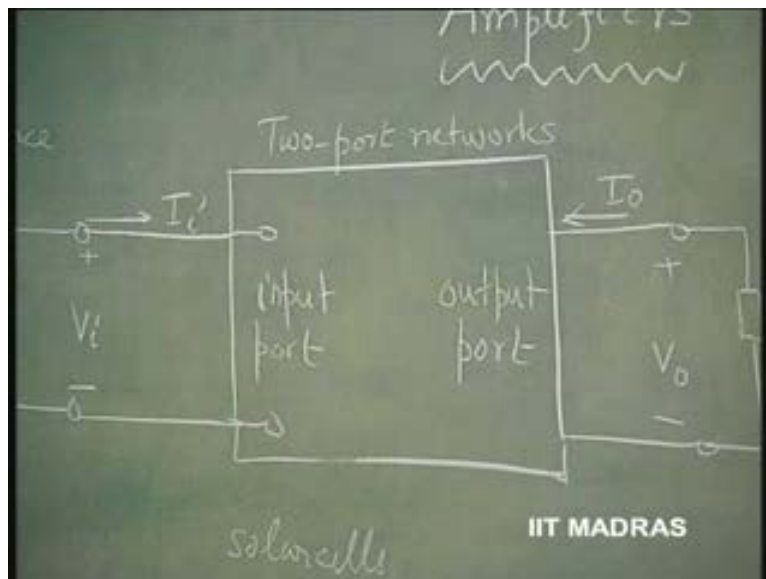 Amplifiers
Two-port networks
Ii
Io
+
+
input
port
output
port
Vi
Vo
-
-
solarcells
IIT MADRAS